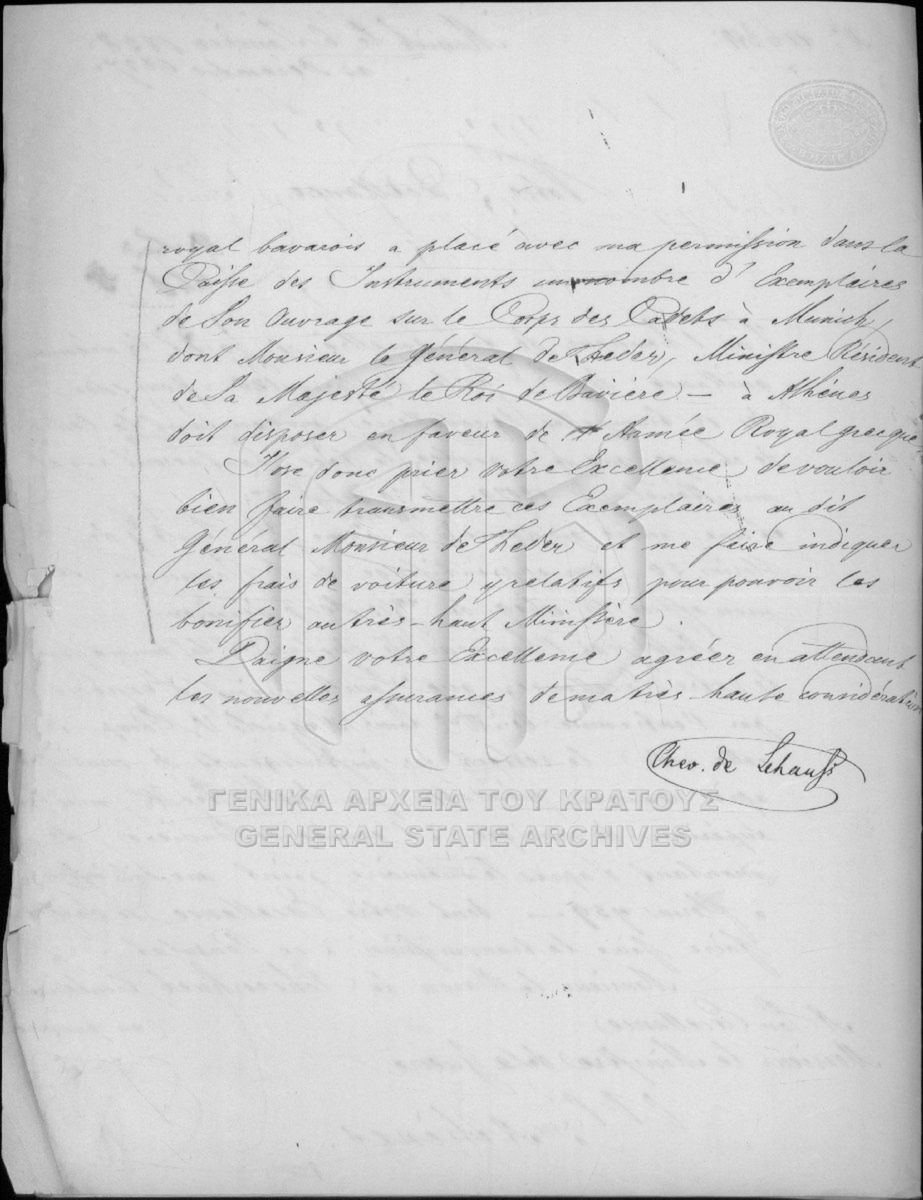 royal bavarois a placé avec ma permission dans la
Caisse des Instruments un nombre d'Exemplaires
de Son Ouvrage sur le Corps des Cadets à Munich,
dont Monsieur le Général de Heder, Ministre Résident
de Sa Majesté le Roi de Bavière — à Athènes
doit disposer en faveur de l'Armée Royal grecque
J'ose donc prier votre Excellence, de vouloir
bien faire transmettre ces Exemplaires au dit
Général Monsieur de Heder et me faire indiquer
les frais de voiture y relatifs pour pouvoir les
bonifier au très-haut Ministère.
Daigne votre Excellence agréer en attendant
les nouvelles assurances de ma très haute considération
Chev. de Lehauss
ΓΕΝΙΚΑ ΑΡΧΕΙΑ ΤΟΥ ΚΡΑΤΟΥΣ
GENERAL STATE ARCHIVES